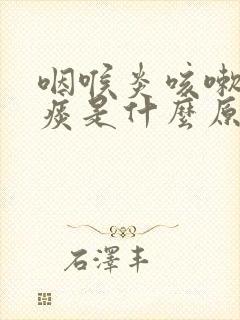 咽喉炎咳嗽
痰是什麼原
石澤丰